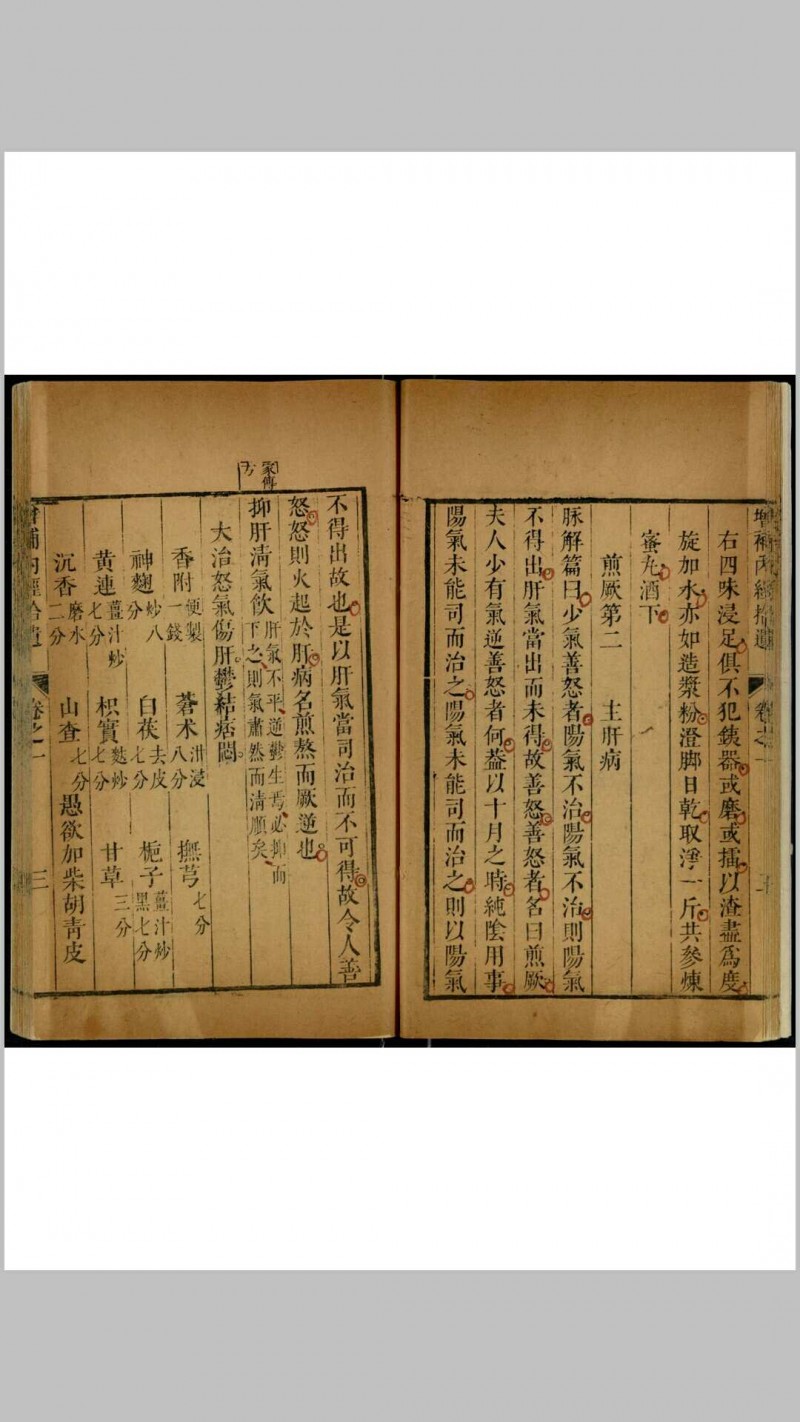 增補內經拾遺 卷之一
右四味浸足俱不犯銕器或磨或擂以渣盡爲度
旋加水亦如造漿粉澄脚日乾取淨一斤共參煉
蜜丸酒下
煎厥第二 主肝病
脉解篇曰少氣善怒者陽氣不治陽氣不治則陽氣
不得出肝氣當出而未得故善怒善怒者名曰煎厥
夫人少有氣逆善怒者何葢以十月之時純陰用事
陽氣未能司而治之陽氣未能司而治之則以陽氣
不得出故也是以肝氣當司治而不可得故令人善
怒怒則火起於肝病名煎熬而厥逆也
家傳方
抑肝清氣飲 肝氣不平逆鬱生焉必抑而下之則氣肅然而清順矣
大治怒氣傷肝鬱結痞悶
香附 便製一錢 蒼术 泔浸八分 撫芎 七分
神麯 炒八分 白茯 去皮七分 梔子 薑汁炒黑七分
黄連 薑汁炒七分 枳實 麩炒七分 甘草 三分
沉香 磨水二分 山查 七分 愚欲加柴胡青皮
增補內經拾遺 卷之一 三